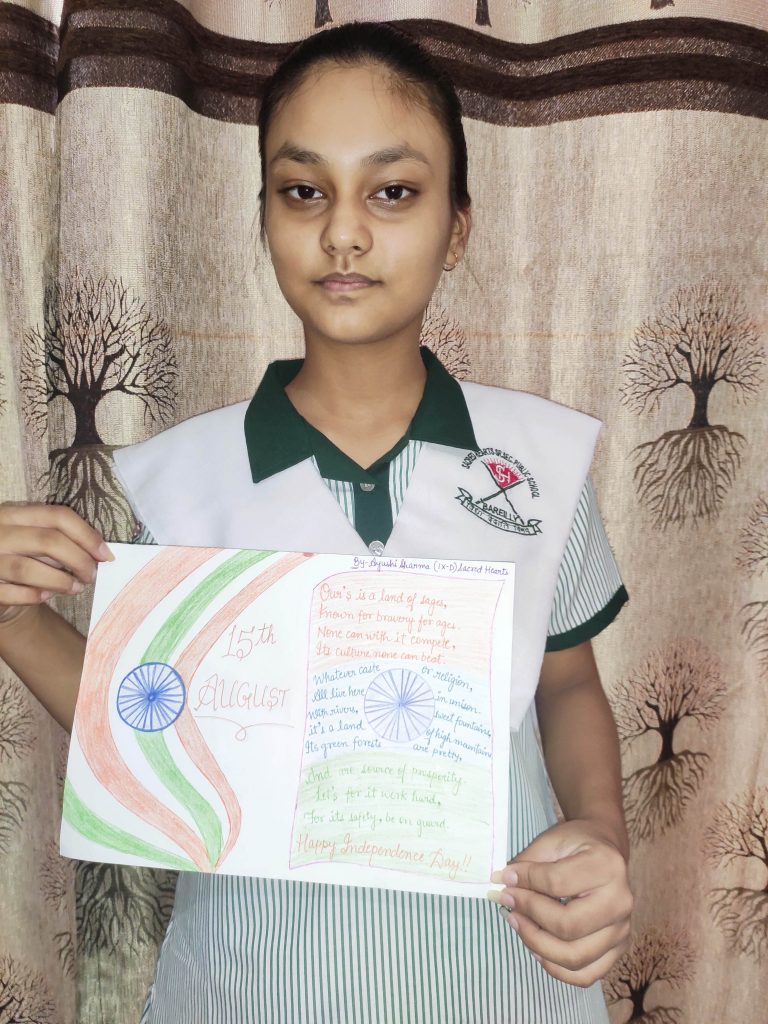 SACRED HEARTS SR. SEC. PUBLIC SCHOOL
SH
BAREILLY
By-Ayushi Sharma (IX-D) Sacred Hearts
15th
AUGUST
Our's is a land of sages,
Known for bravery for ages.
None can with it compete,
Its culture none can beat.
Whatever caste or religion,
All live here in unison.
With rivers, sweet fountains,
it's a land of high mountains
Its green forests are pretty,
And are source of prosperity.
Let's for it work hard,
For its safety, be on guard.
Happy Independence Day!!